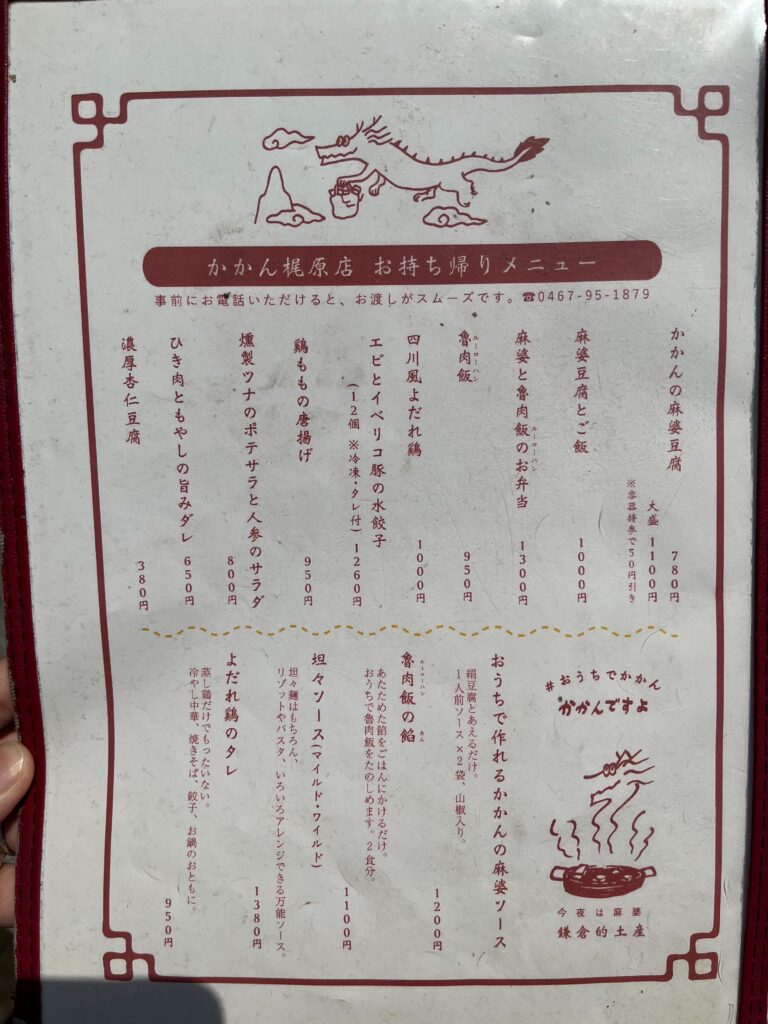 かかん梶原店 お持ち帰りメニュー
事前にお電話いただけると、お渡しがスムーズです。☎0467-95-1879
かかんの麻婆豆腐 780円
大盛 1100円
※容器持参で50円引き
麻婆豆腐とご飯 1000円
麻婆と魯肉飯のお弁当 1300円
ルーローハン
魯肉飯 950円
ルーローハン
四川風よだれ鶏 1000円
エビとイベリコ豚の水餃子
(12個 ※冷凍・タレ付) 1260円
鶏ももの唐揚げ 950円
燻製ツナのポテサラと人参のサラダ 800円
ひき肉ともやしの旨みダレ 650円
濃厚杏仁豆腐 380円
#おうちでかかん
かかんですよ
今夜は麻婆
鎌倉的土産
おうちで作れるかかんの麻婆ソース
絹豆腐とあえるだけ。
1人前ソース×2袋、山椒入り。
1200円
魯肉飯の餡
ルーローハン あん
あたためた餡をごはんにかけるだけ。
おうちで魯肉飯をたのしめます。2食分。
1100円
坦々ソース(マイルド・ワイルド)
坦々麺はもちろん、
リゾットやパスタ、いろいろアレンジできる万能ソース。
1380円
よだれ鶏のタレ
蒸し鶏だけでもったいない。
冷やし中華、焼きそば、餃子、お鍋のおともに。
950円